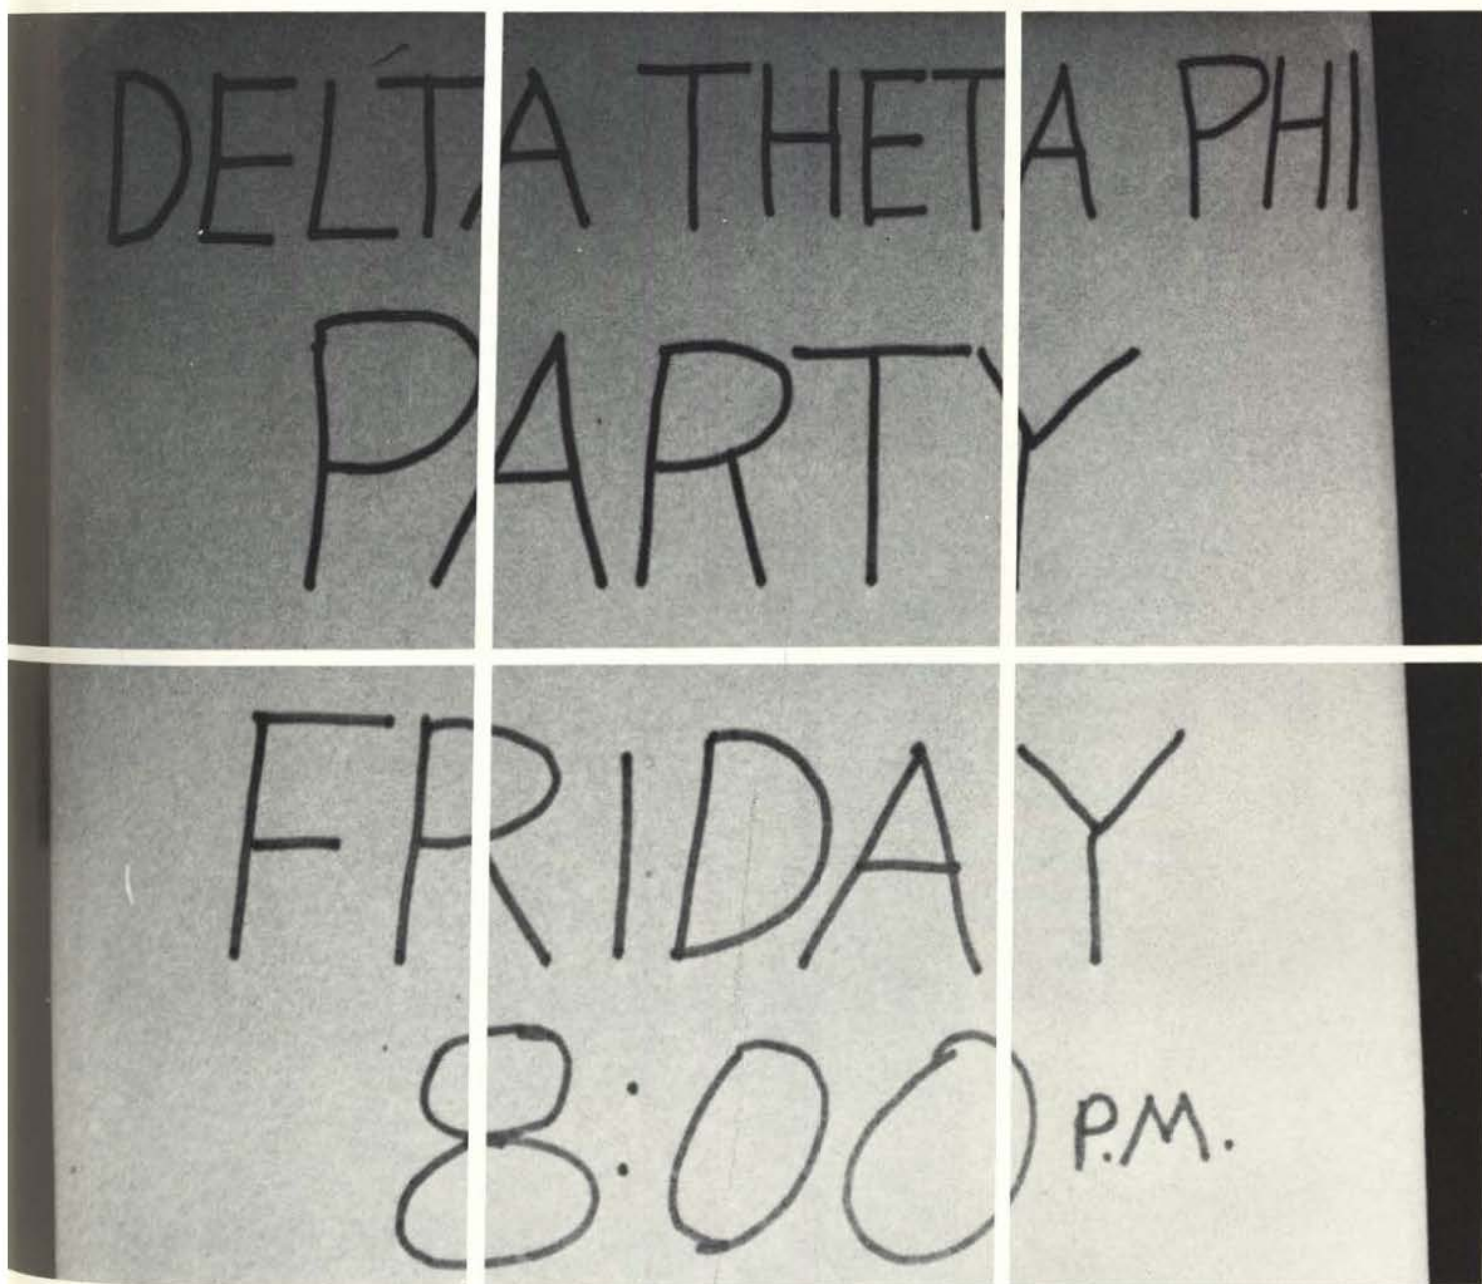 DELTA THETA PHI
PARTY
FRIDAY
8:00 P.M.